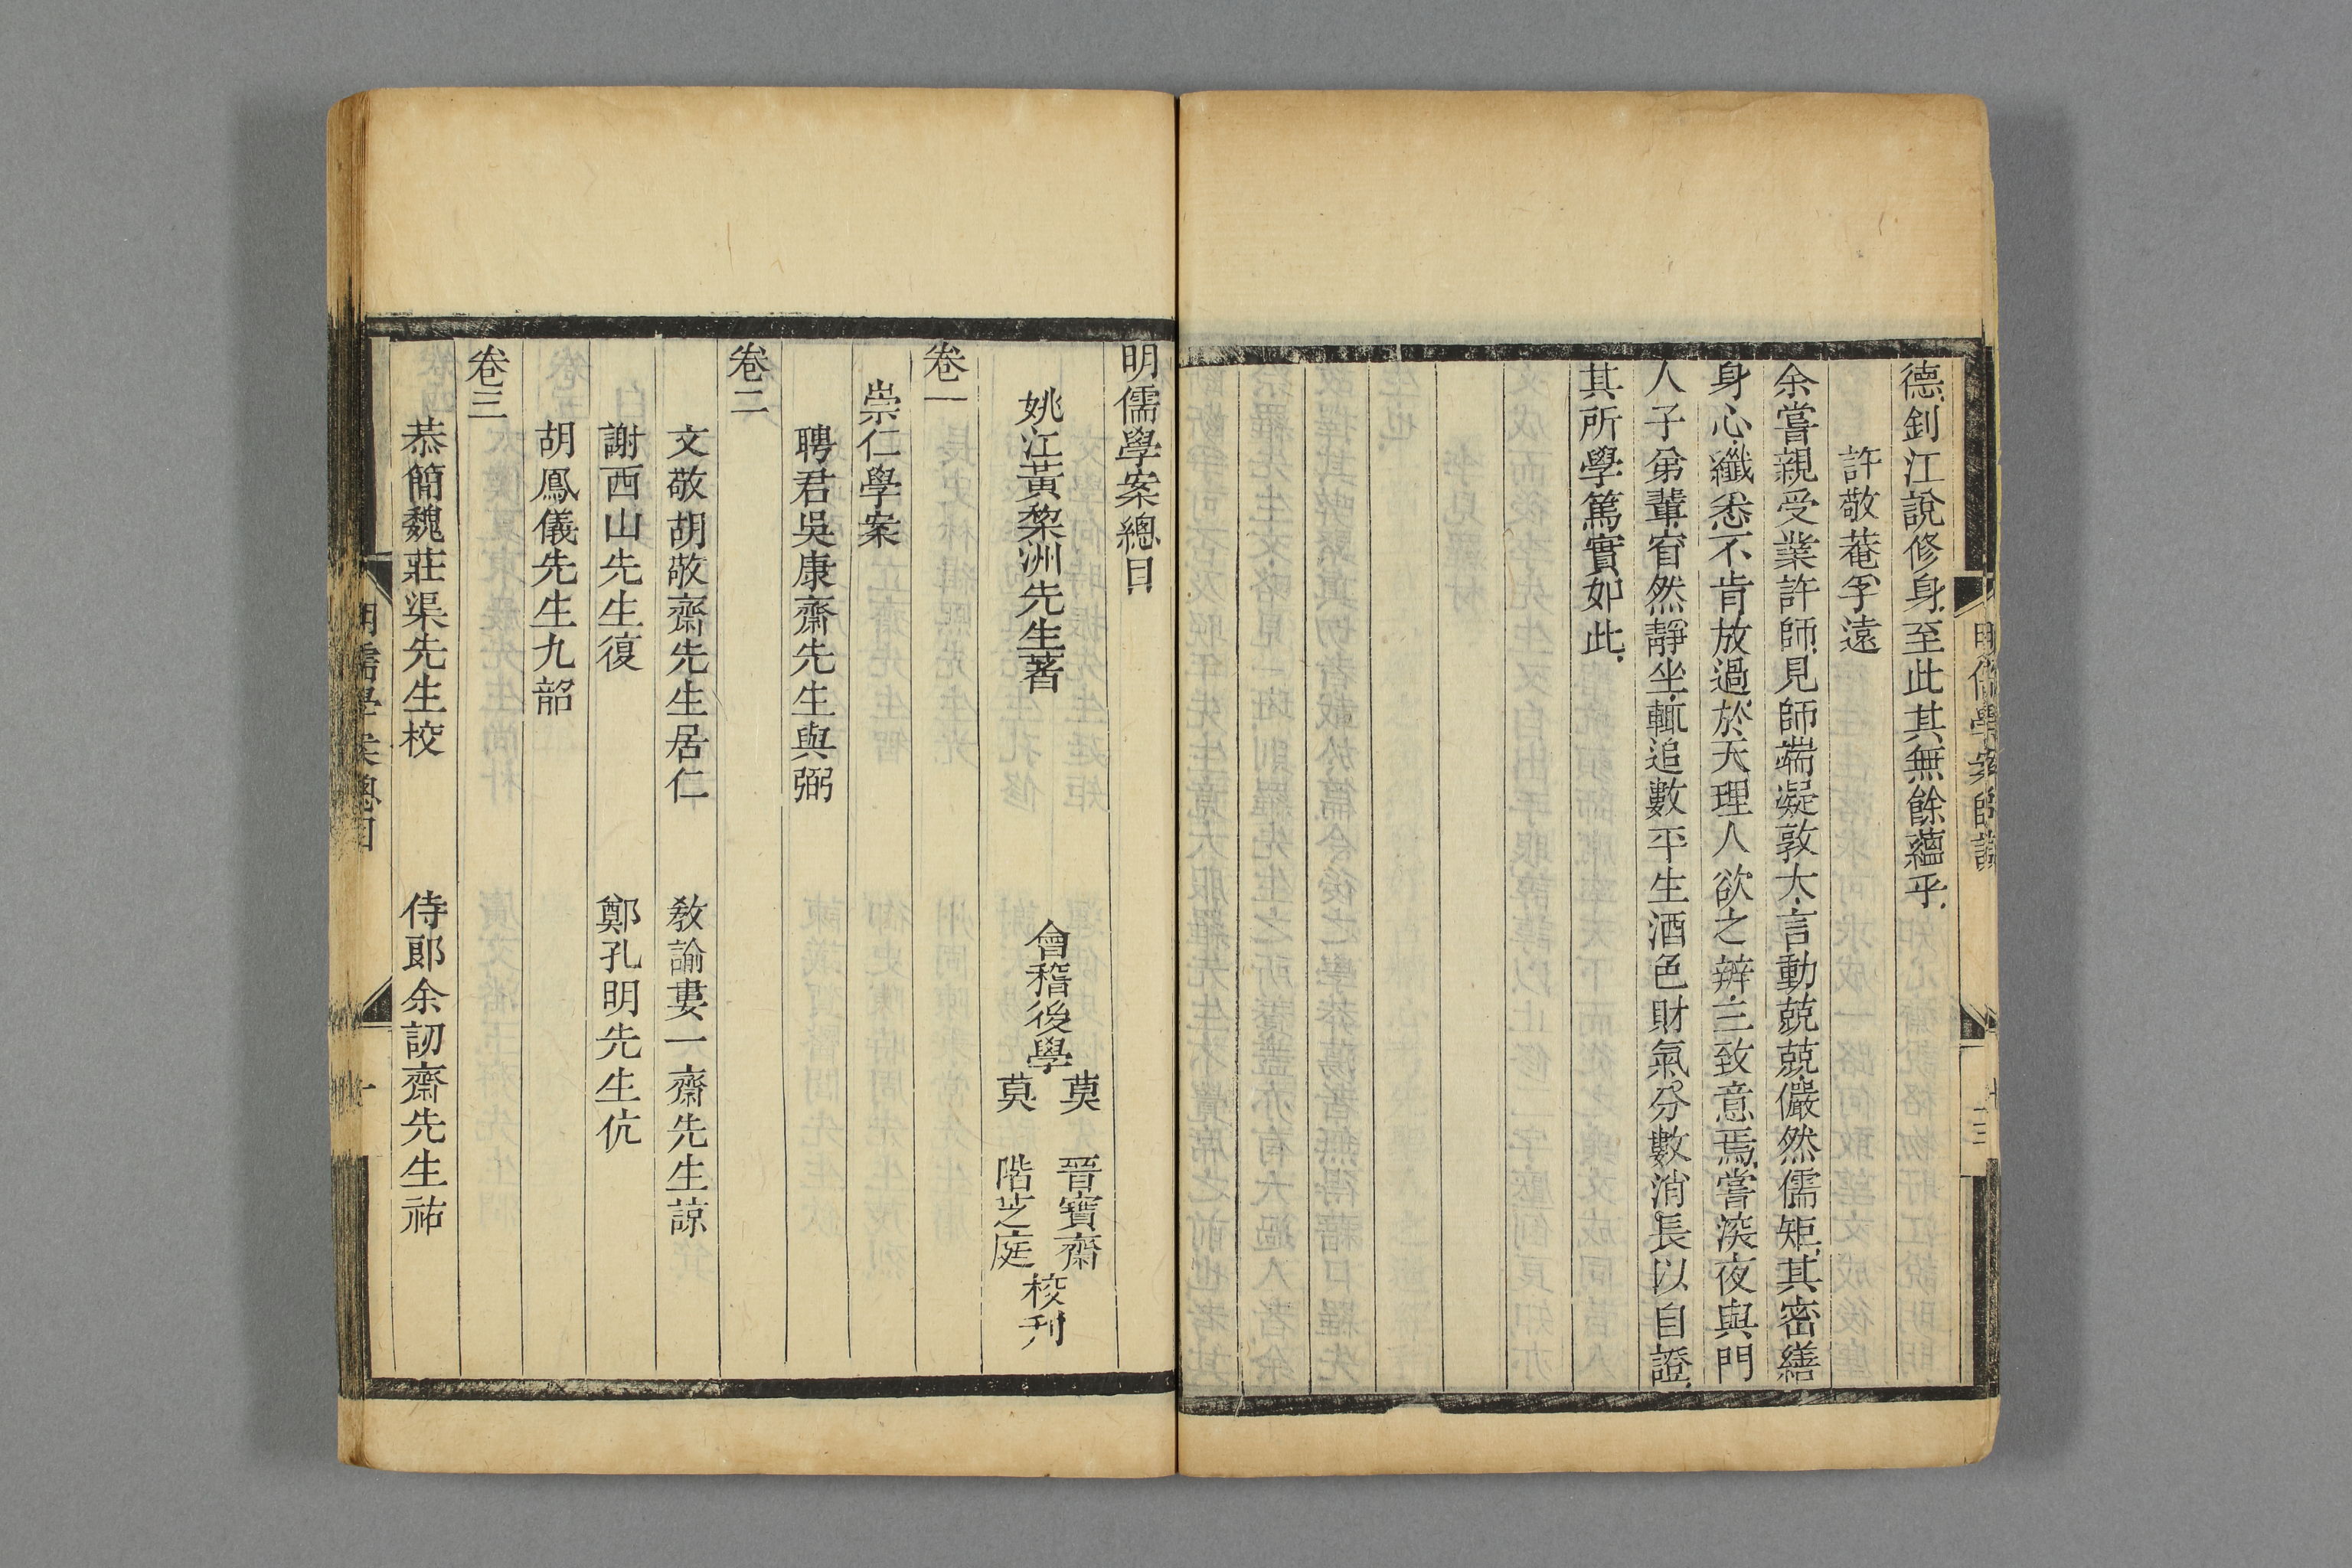 德.釗江說修身.至此其無餘蘊乎.
許敬菴孚遠
余嘗親受業許師.見師端凝敦大.言動兢兢.儼然儒矩.其密繕
身心.纖悉不肯放過.於天理人欲之辨.三致意焉.嘗深夜與門
人子弟輩.窅然靜坐.輒追數平生酒色財氣.分數消長以自證.
其所學篤實如此.
明儒學案總目
姚江黃棃洲先生著 會稽後學 莫晉寶齋 莫階芝庭 校刊
卷一
崇仁學案
聘君吳康齋先生與弼
卷二
文敬胡敬齋先生居仁 教諭婁一齋先生諒
謝西山先生復 鄭孔明先生伉
胡鳳儀先生九韶
卷三
恭簡魏莊渠先生校 侍郎余訒齋先生祐
明儒學案總目
一